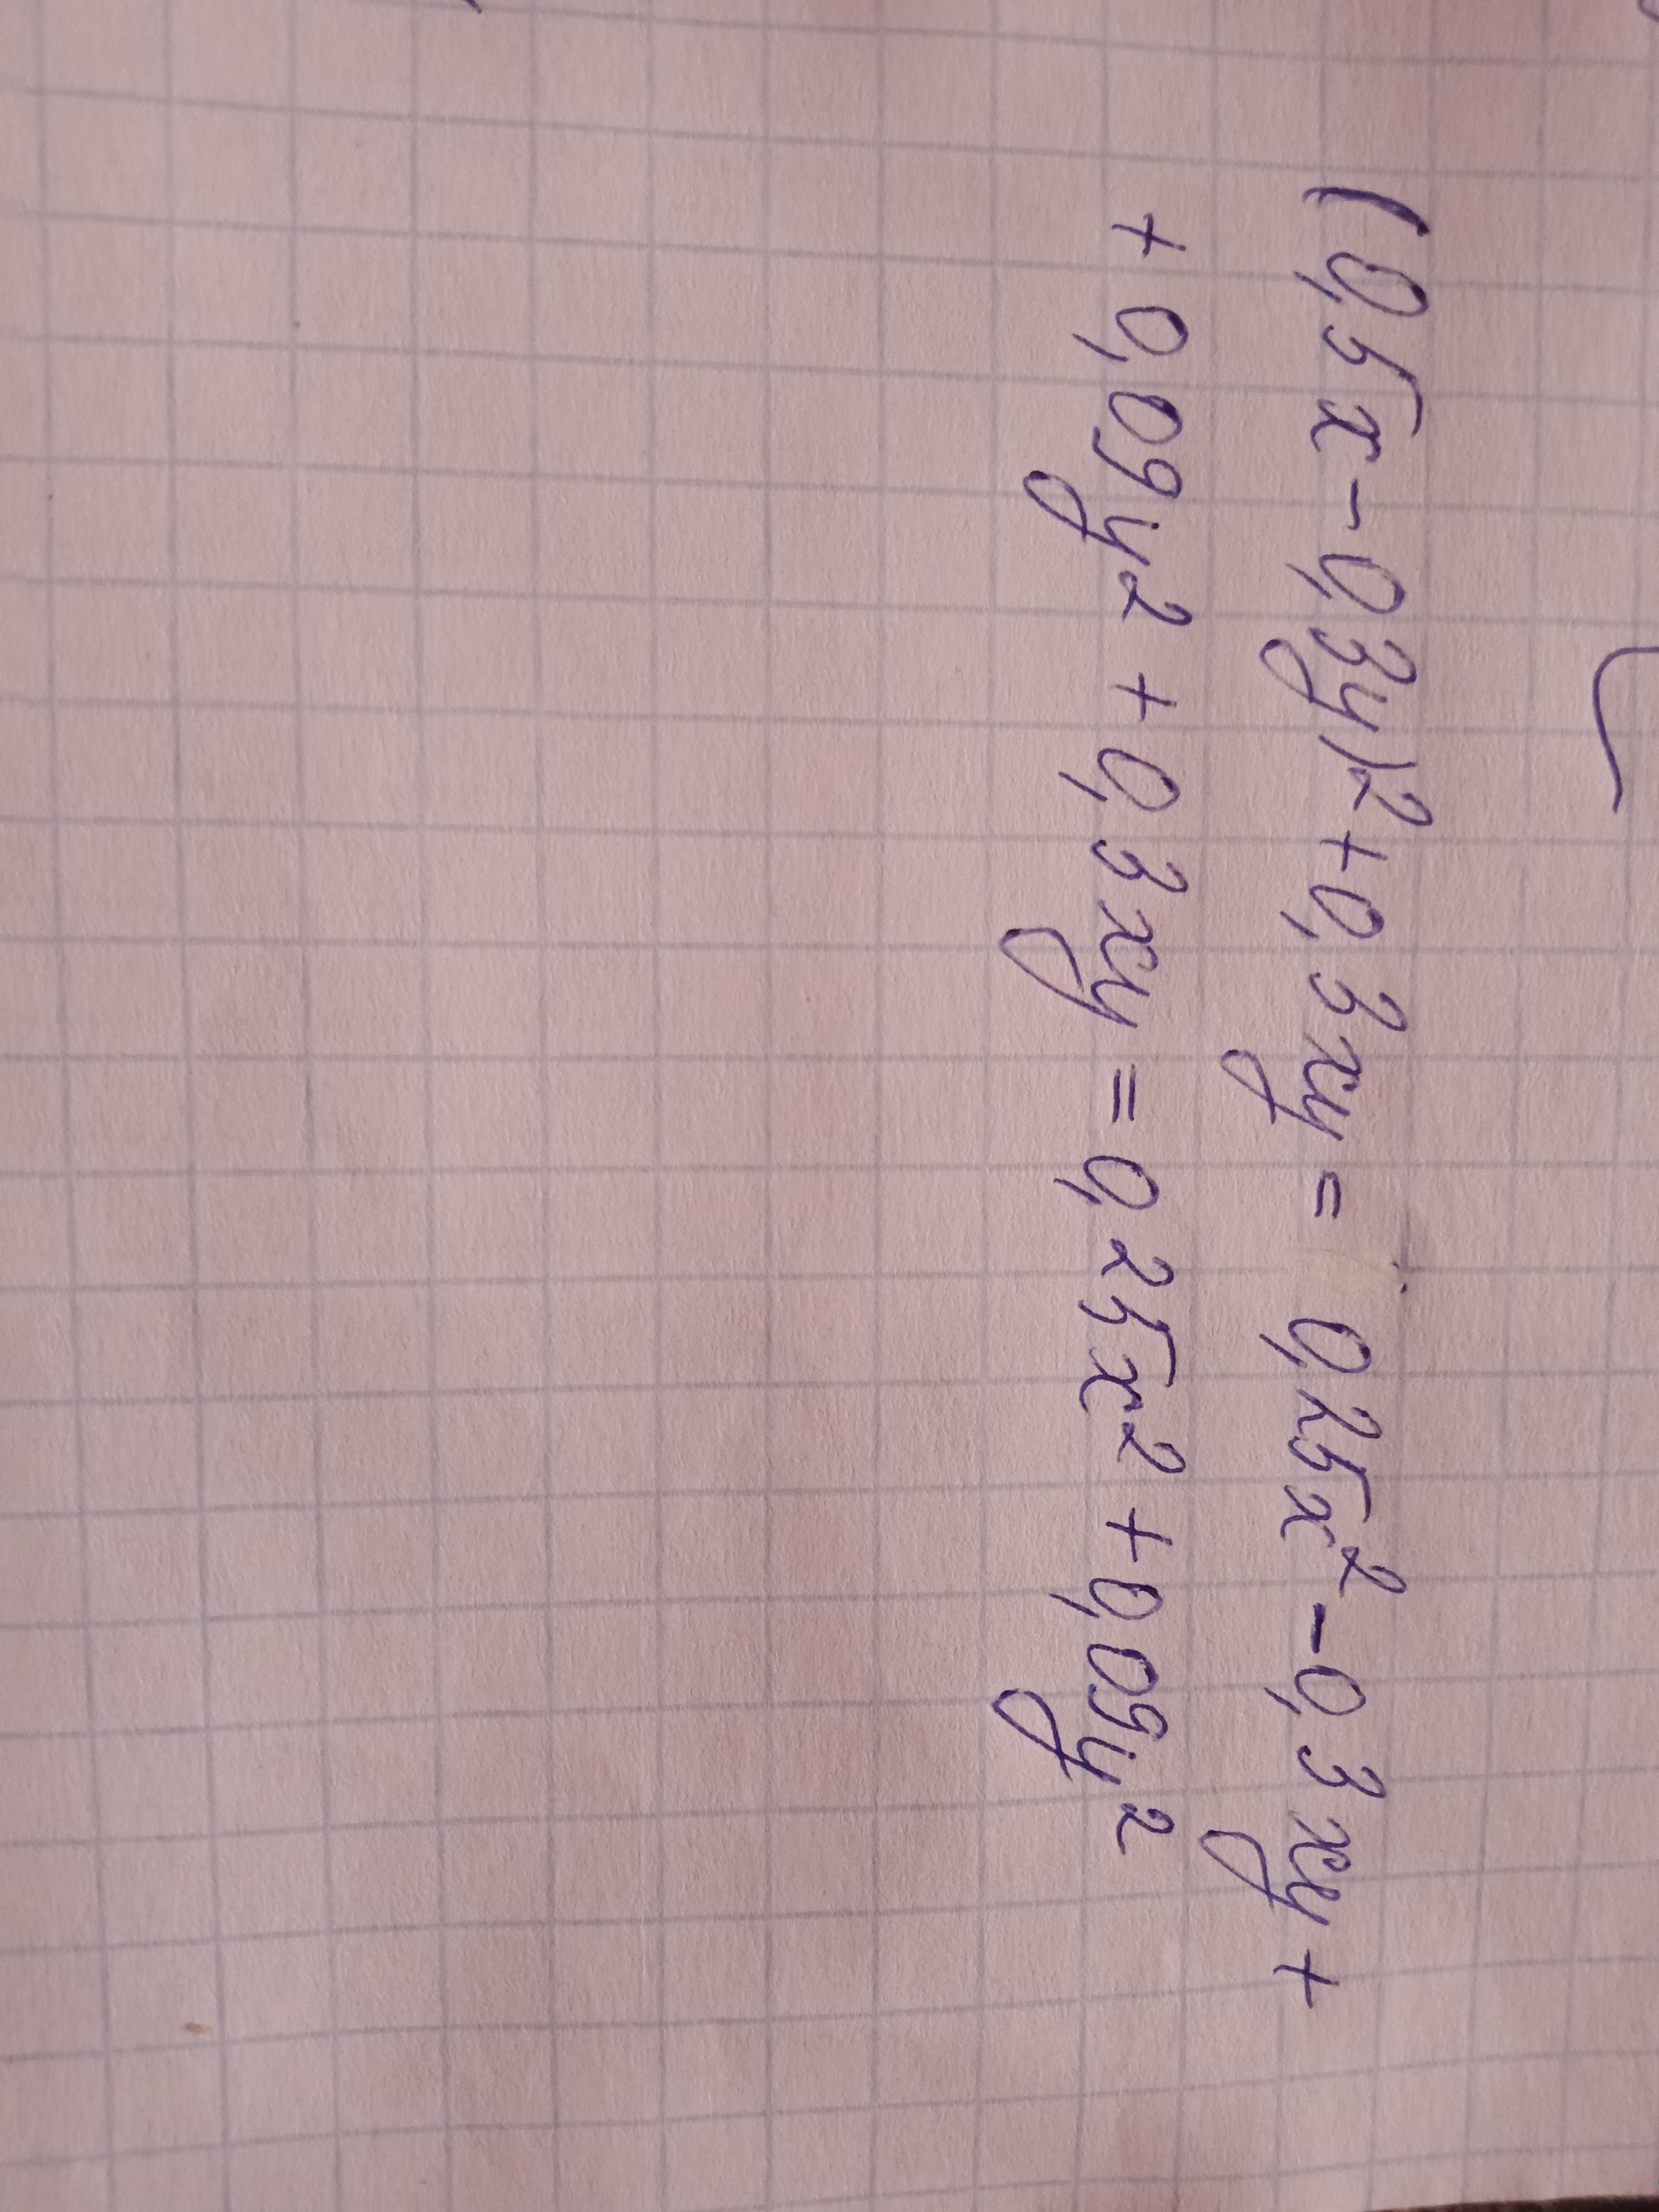 (0,5x-0,3y)²+0,3xy= 0,25x²-0,3xy+
+0,09y²+0,3xy=0,25x²+0,09y²